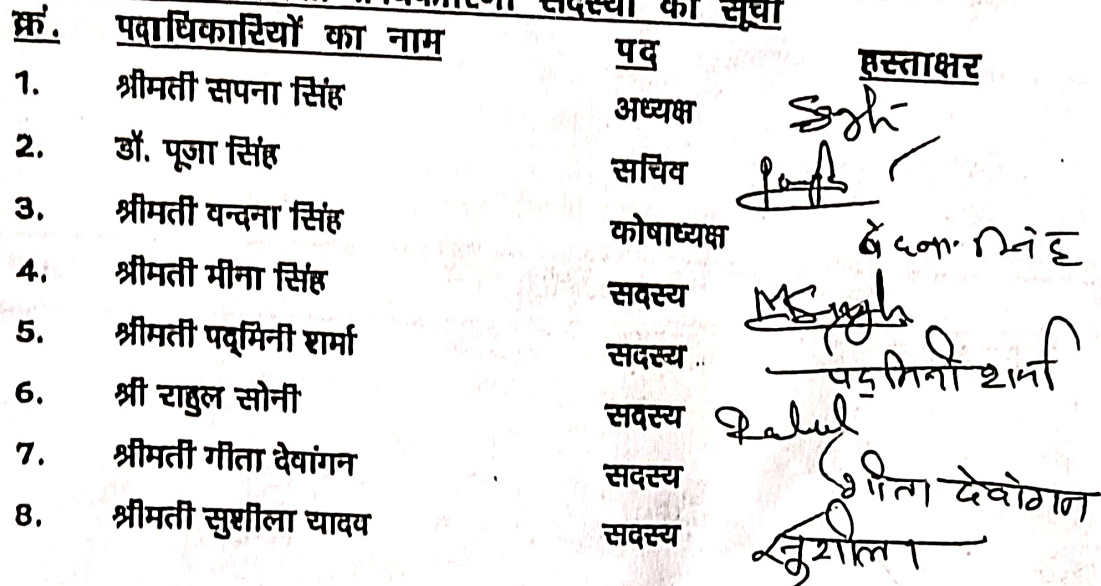 सदस्यों की सूची
क्रं. पदाधिकारियों का नाम पद हस्ताक्षर
1. श्रीमती सपना सिंह अध्यक्ष
2. डॉ. पूजा सिंह सचिव
3. श्रीमती वन्दना सिंह कोषाध्यक्ष सिंह
4. श्रीमती मीना सिंह सदस्य MSingh
5. श्रीमती पद्मिनी शर्मा सदस्य पद्मिनी शर्मा
6. श्री राहुल सोनी सदस्य Rahul
7. श्रीमती गीता देवांगन सदस्य गीता देवांगन
8. श्रीमती सुशीला यादव सदस्य सुशीला